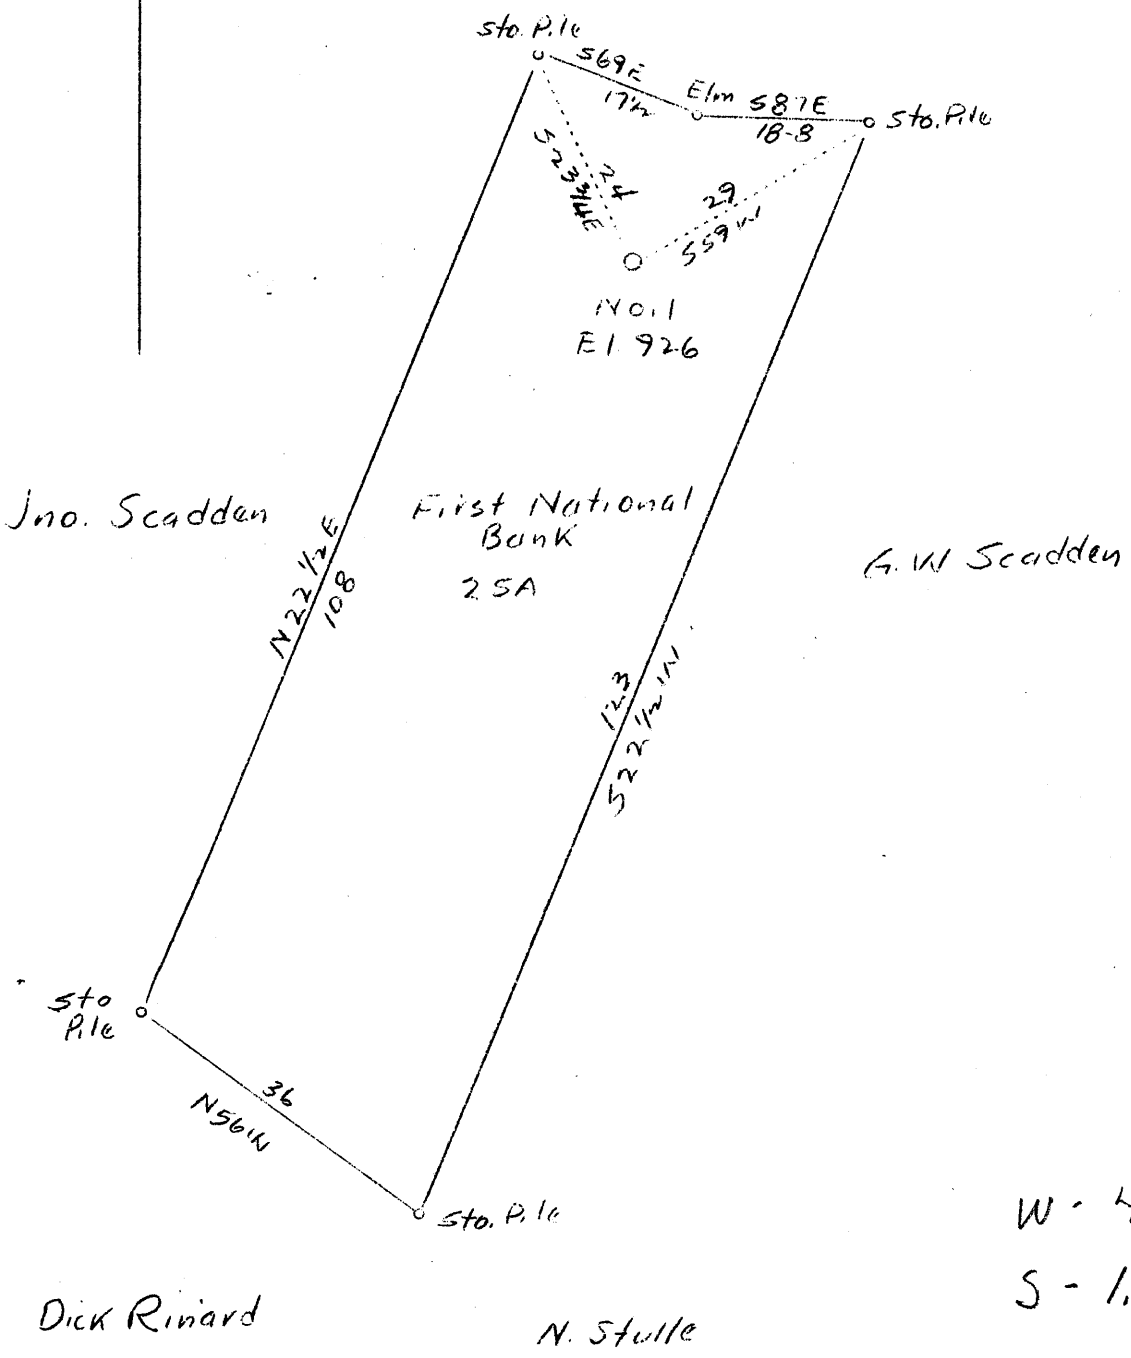 Sto. Pile
S69E
17½
Elm
S87E
18-8
Sto. Pile
24
S23¾E
29
S59W
No. 1
El. 926
Jno. Scadden
First National
Bank
25A
G.W Scadden
N22 1/2 E
108
123
S22 1/2 W
Sto
Pile
36
N56W
Sto. Pile
W -
S - 1.
Dick Rinard
N. Stulle